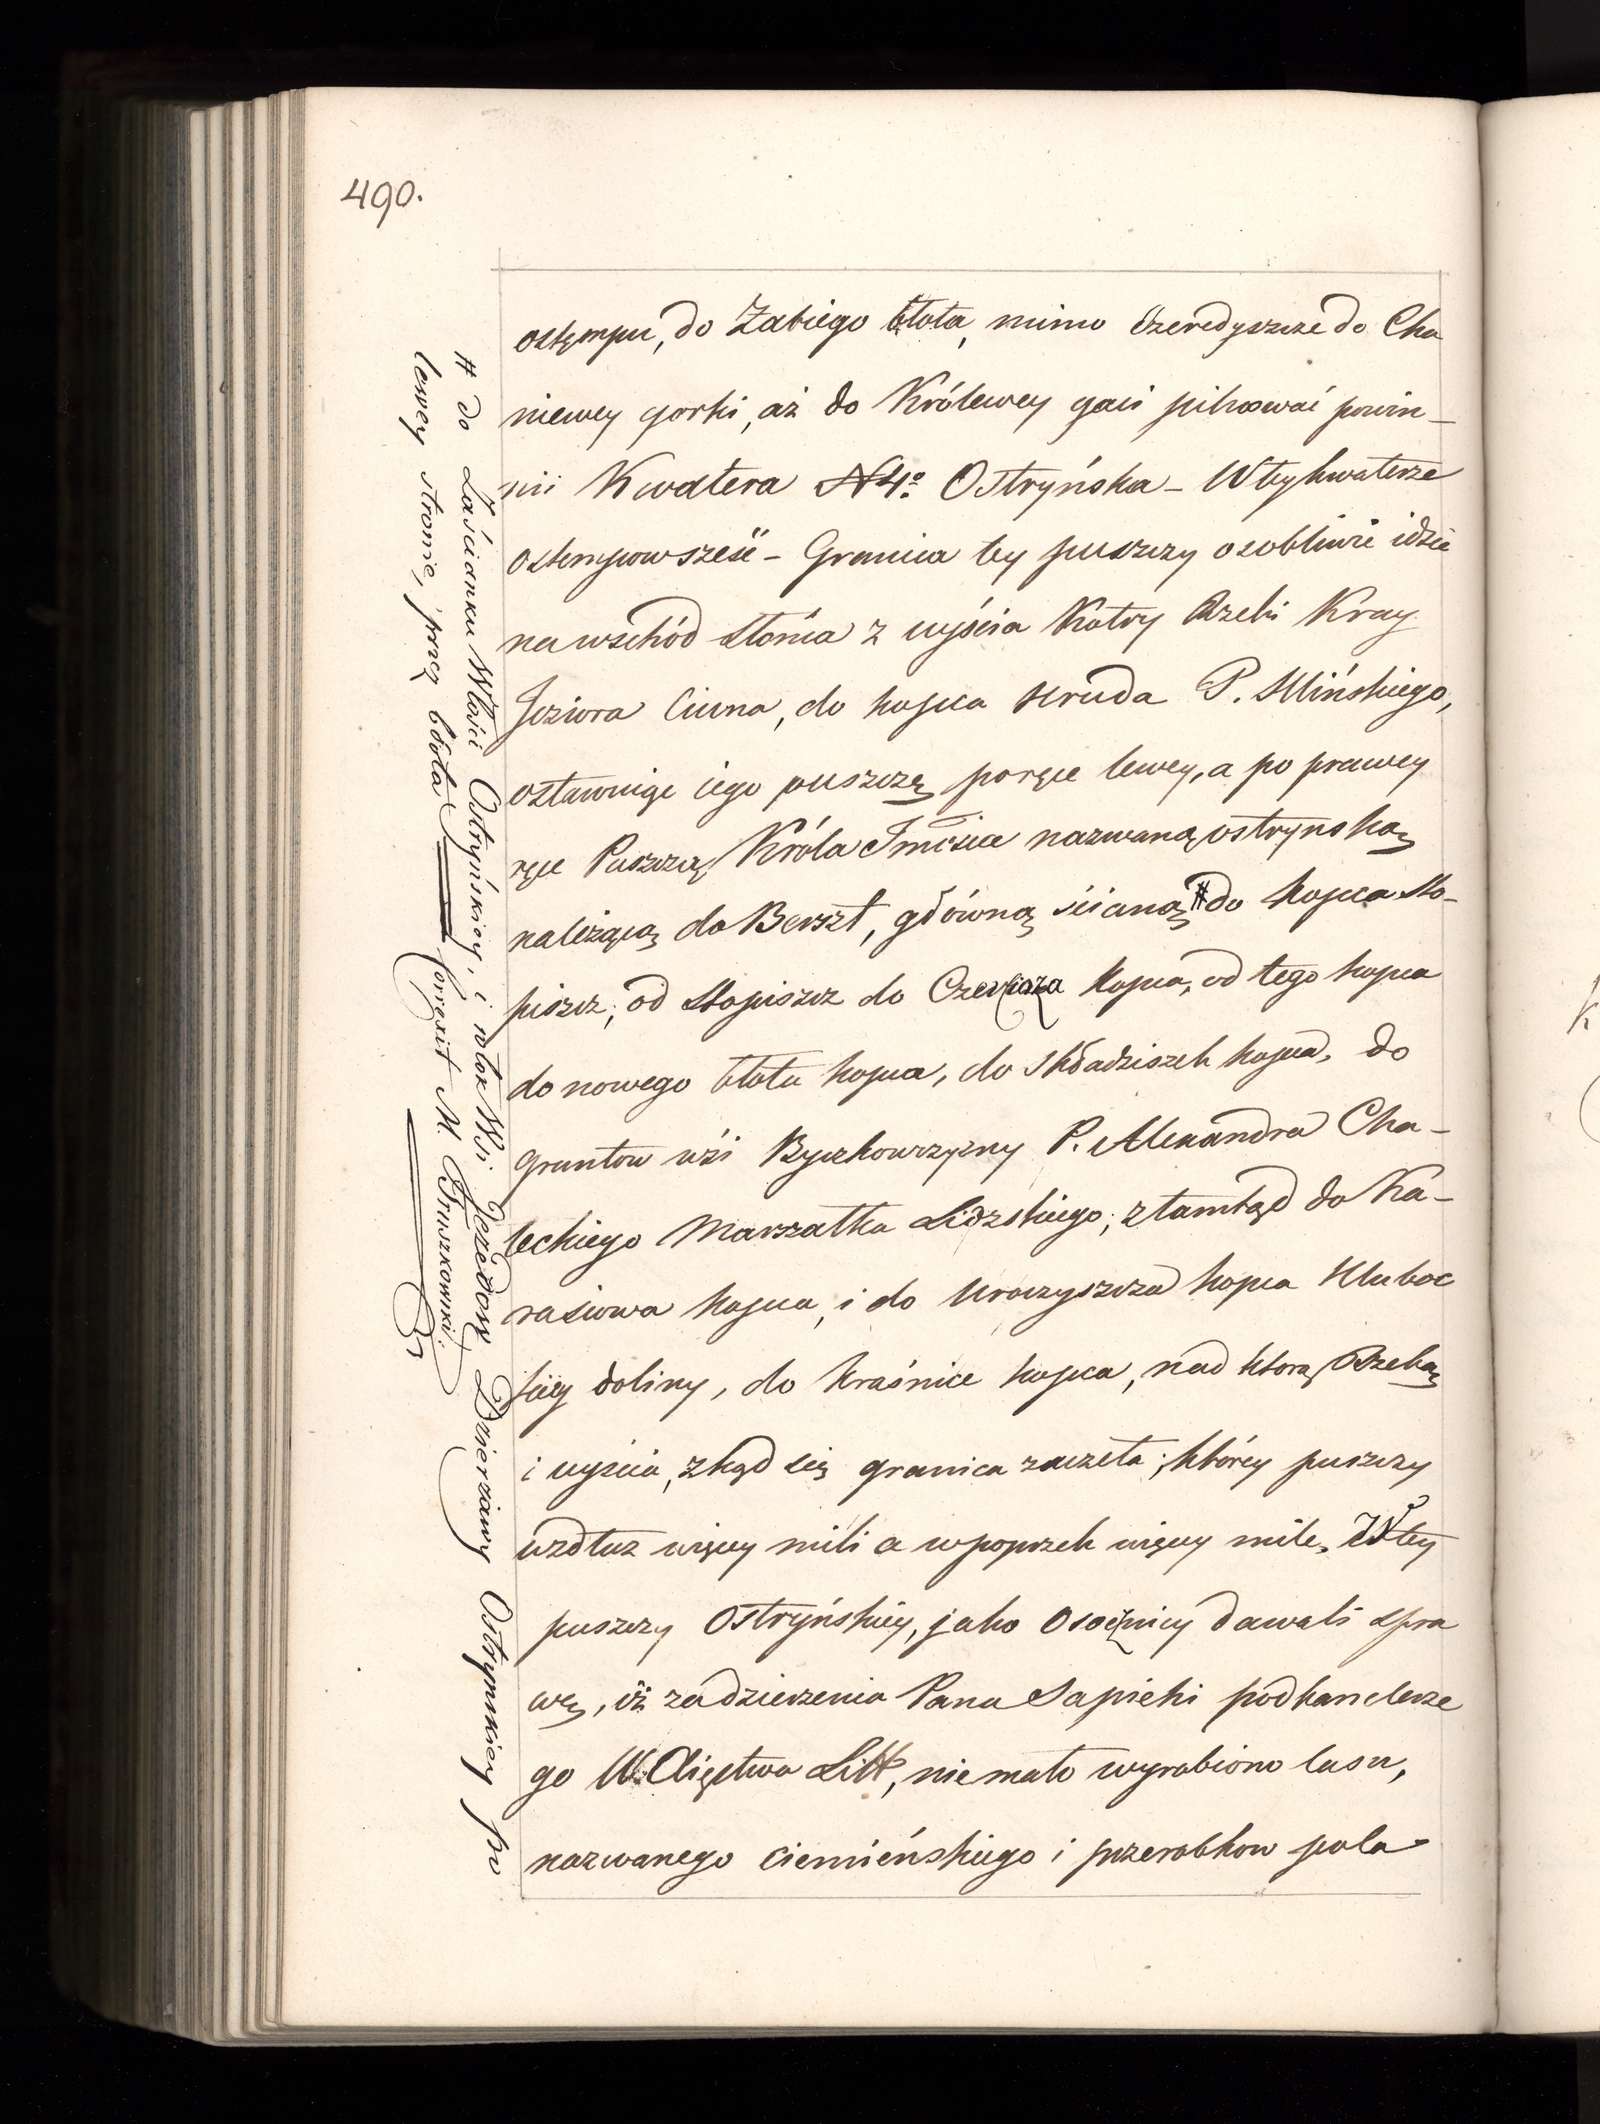 490.
ostempu, do Żabiego błota, mimo Czeredyszcze do Cha
niewey gorki, aż do Królewey gaci pilnować powin-
ni Kwatera N 4º Ostryńska - W tey kwaterze
ostempow sześć - Granica tey puszczy osobliwie idzie
na wschód słońca z uyścia Kotry Rzeki Kray
Jeziora Ciuna, do kopca Kruda P. Illińskiego,
ostawuiąc iego puszczę poręce lewey, a po prawey
ręce Puszczą Króla Jmści nazwaną ostrynską
należącą do Berszt, główną ścianą # do Kopca Sło-
piszcz, od Słopiszcz do kopca, od tego kopca
do nowego błota kopca, do Składziszek kopca, do
gruntow wśi Byczkowszyzny P. Alexandra Cha-
leckiego Marszałka Lidzskiego; ztamtąd do Ka-
rasiowa kopca, i do Uroczyszcza kopca Hluboc
kiey doliny, do Kraśnice kopca, nad ktorą Rzeką
i uyścia, zkąd się granica zaczeła; którey puszczy
wzdłuż więcey mili a wpoprzek więcey mile. W tey
puszczy Ostryńskiey, jako Osocznicy dawali spra
wę, iż za dzierżenia Pana Sapiehi podkanclerze
go W. Xięstwa Litt, niemało wyrobiono lasu,
nazwanego ciemieńskiego i przerobkow pola
# do Zaścianku Włości Ostryńskiey, i włok Wsi Jezedow Dzierżawy Ostrynskiey po
lewey stronie, przez błota correxit M. Pruszkowski.